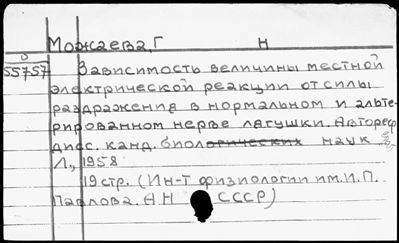 Можаева, Г Н
О
55757
Зависимость величины местной
электрической реакции от силы
раздражения в нормальном и альте-
рированном нерве лягушки. Автореф
дисс. канд. биологических наук
Л., 1958
19 стр. (Ин-т физиологии им. И.П.
Павлова. АН СССР)